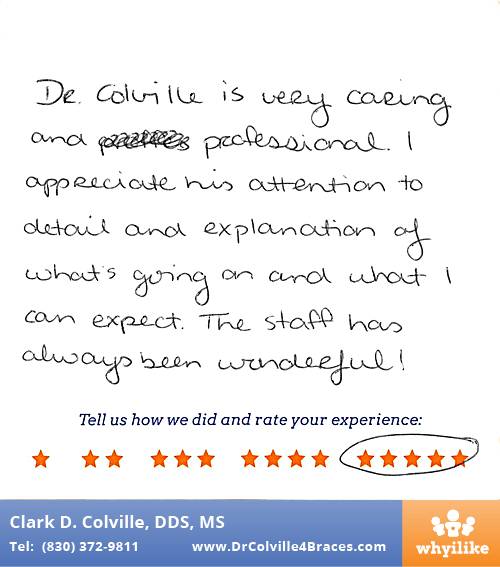 Dr. Colville is very caring
and professional. I
appreciate his attention to
detail and explanation of
what's going on and what I
can expect. The staff has
always been wonderful!
Tell us how we did and rate your experience:
Clark D. Colville, DDS, MS
Tel: (830) 372-9811 www.DrColville4Braces.com
whyilike